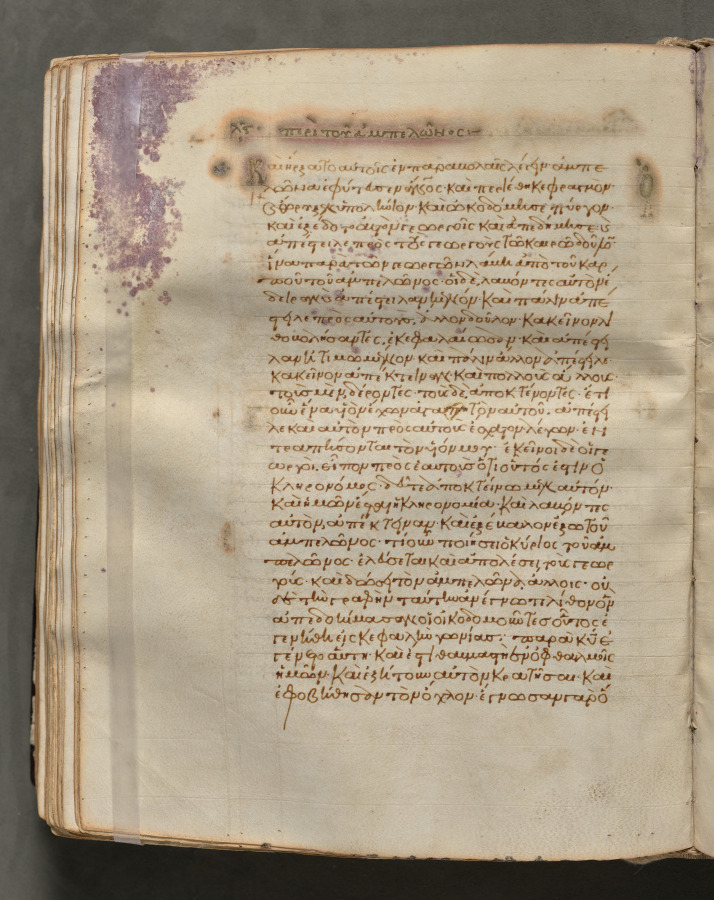 λϛ· περὶ τοῦ ἀμπελῶνος:–
Καὶ ἤρξατο αὐτοῖς ἐν παραβολαῖς λέγειν ἀμπε
λῶνα ἐφύτευσεν καὶ περιέθηκε φραγμὸν·
καὶ ὤρυξεν ὑπολήνιον· καὶ ᾠκοδόμησε πύργον·
καὶ ἐξέδοτο αὐτὸν γεωργοῖς καὶ ἀπεδήμησε·
ἀπέστειλε πρὸς τοὺς γεωργοὺς τῶ καιρῶ δοῦλον·
ἵνα παρὰ τῶν γεωργῶν λάβη ἀπὸ τοῦ καρ
ποῦ τοῦ ἀμπελῶνος· οἱ δὲ, λαβόντες αὐτὸν ἔ
δειραν καὶ ἀπέστειλαν κενόν· καὶ πάλιν ἀπέ
στειλε πρὸς αὐτοὺς, ἄλλον δοῦλον· κἀκεῖνον λι
θοβολήσαντες, ἐκεφαλαίωσαν· καὶ ἀπέστει
λαν ἠτιμωμένον· καὶ πάλιν ἄλλον ἀπέστειλε·
κἀκεῖνον ἀπέκτειναν· καὶ πολλοὺς ἄλλους·
τοὺς μεν, δέροντες· τοὺς δὲ, ἀποκτένοντες· ἔτι
οὖν ἕνα υἱὸν ἔχων ἀγαπητὸν αὐτοῦ· ἀπέστει
λε καὶ αὐτὸν πρὸς αὐτοὺς ἔσχατον λέγων· ἐν
τραπήσονται τὸν υἱόν μου· ἐκεῖνοι δὲ οἱ γε
ωργοὶ, εἶπον πρὸς ἑαυτοὺς ὅτι οὗτός ἐστιν ὁ
κληρονόμος· δεῦτε ἀποκτείνωμεν αὐτόν·
καὶ ἡμῶν ἔσται ἡ κληρονομία· καὶ λαβόντες
αὐτὸν, ἀπέκτειναν· καὶ ἐξέβαλον ἔξω τοῦ
ἀμπελῶνος· τί οὖν ποιήσει ὁ κύριος τοῦ ἀμ
πελῶνος· ἐλεύσεται καὶ ἀπολέσει, τοὺς γεωρ
γούς· καὶ δώσει τὸν ἀμπελῶνα, ἄλλοις· οὐ
δὲ τὴν γραφὴν ταύτην ἀνέγνωτε λίθον ὃν
ἀπεδοκίμασαν οἱ οἰκοδομοῦντες οὗτος ἐ
γενήθη εἰς κεφαλὴν γωνίας:· παρὰ κυ ἐ
γένετο αὕτη· καὶ ἔστι θαυμαστὴ ἐν ὀφθαλμοῖς
ἡμῶν· καὶ ἐζήτουν αὐτὸν κρατῆσαι· καὶ
ἐφοβήθησαν τὸν ὄχλον· ἔγνωσαν γὰρ ὅ